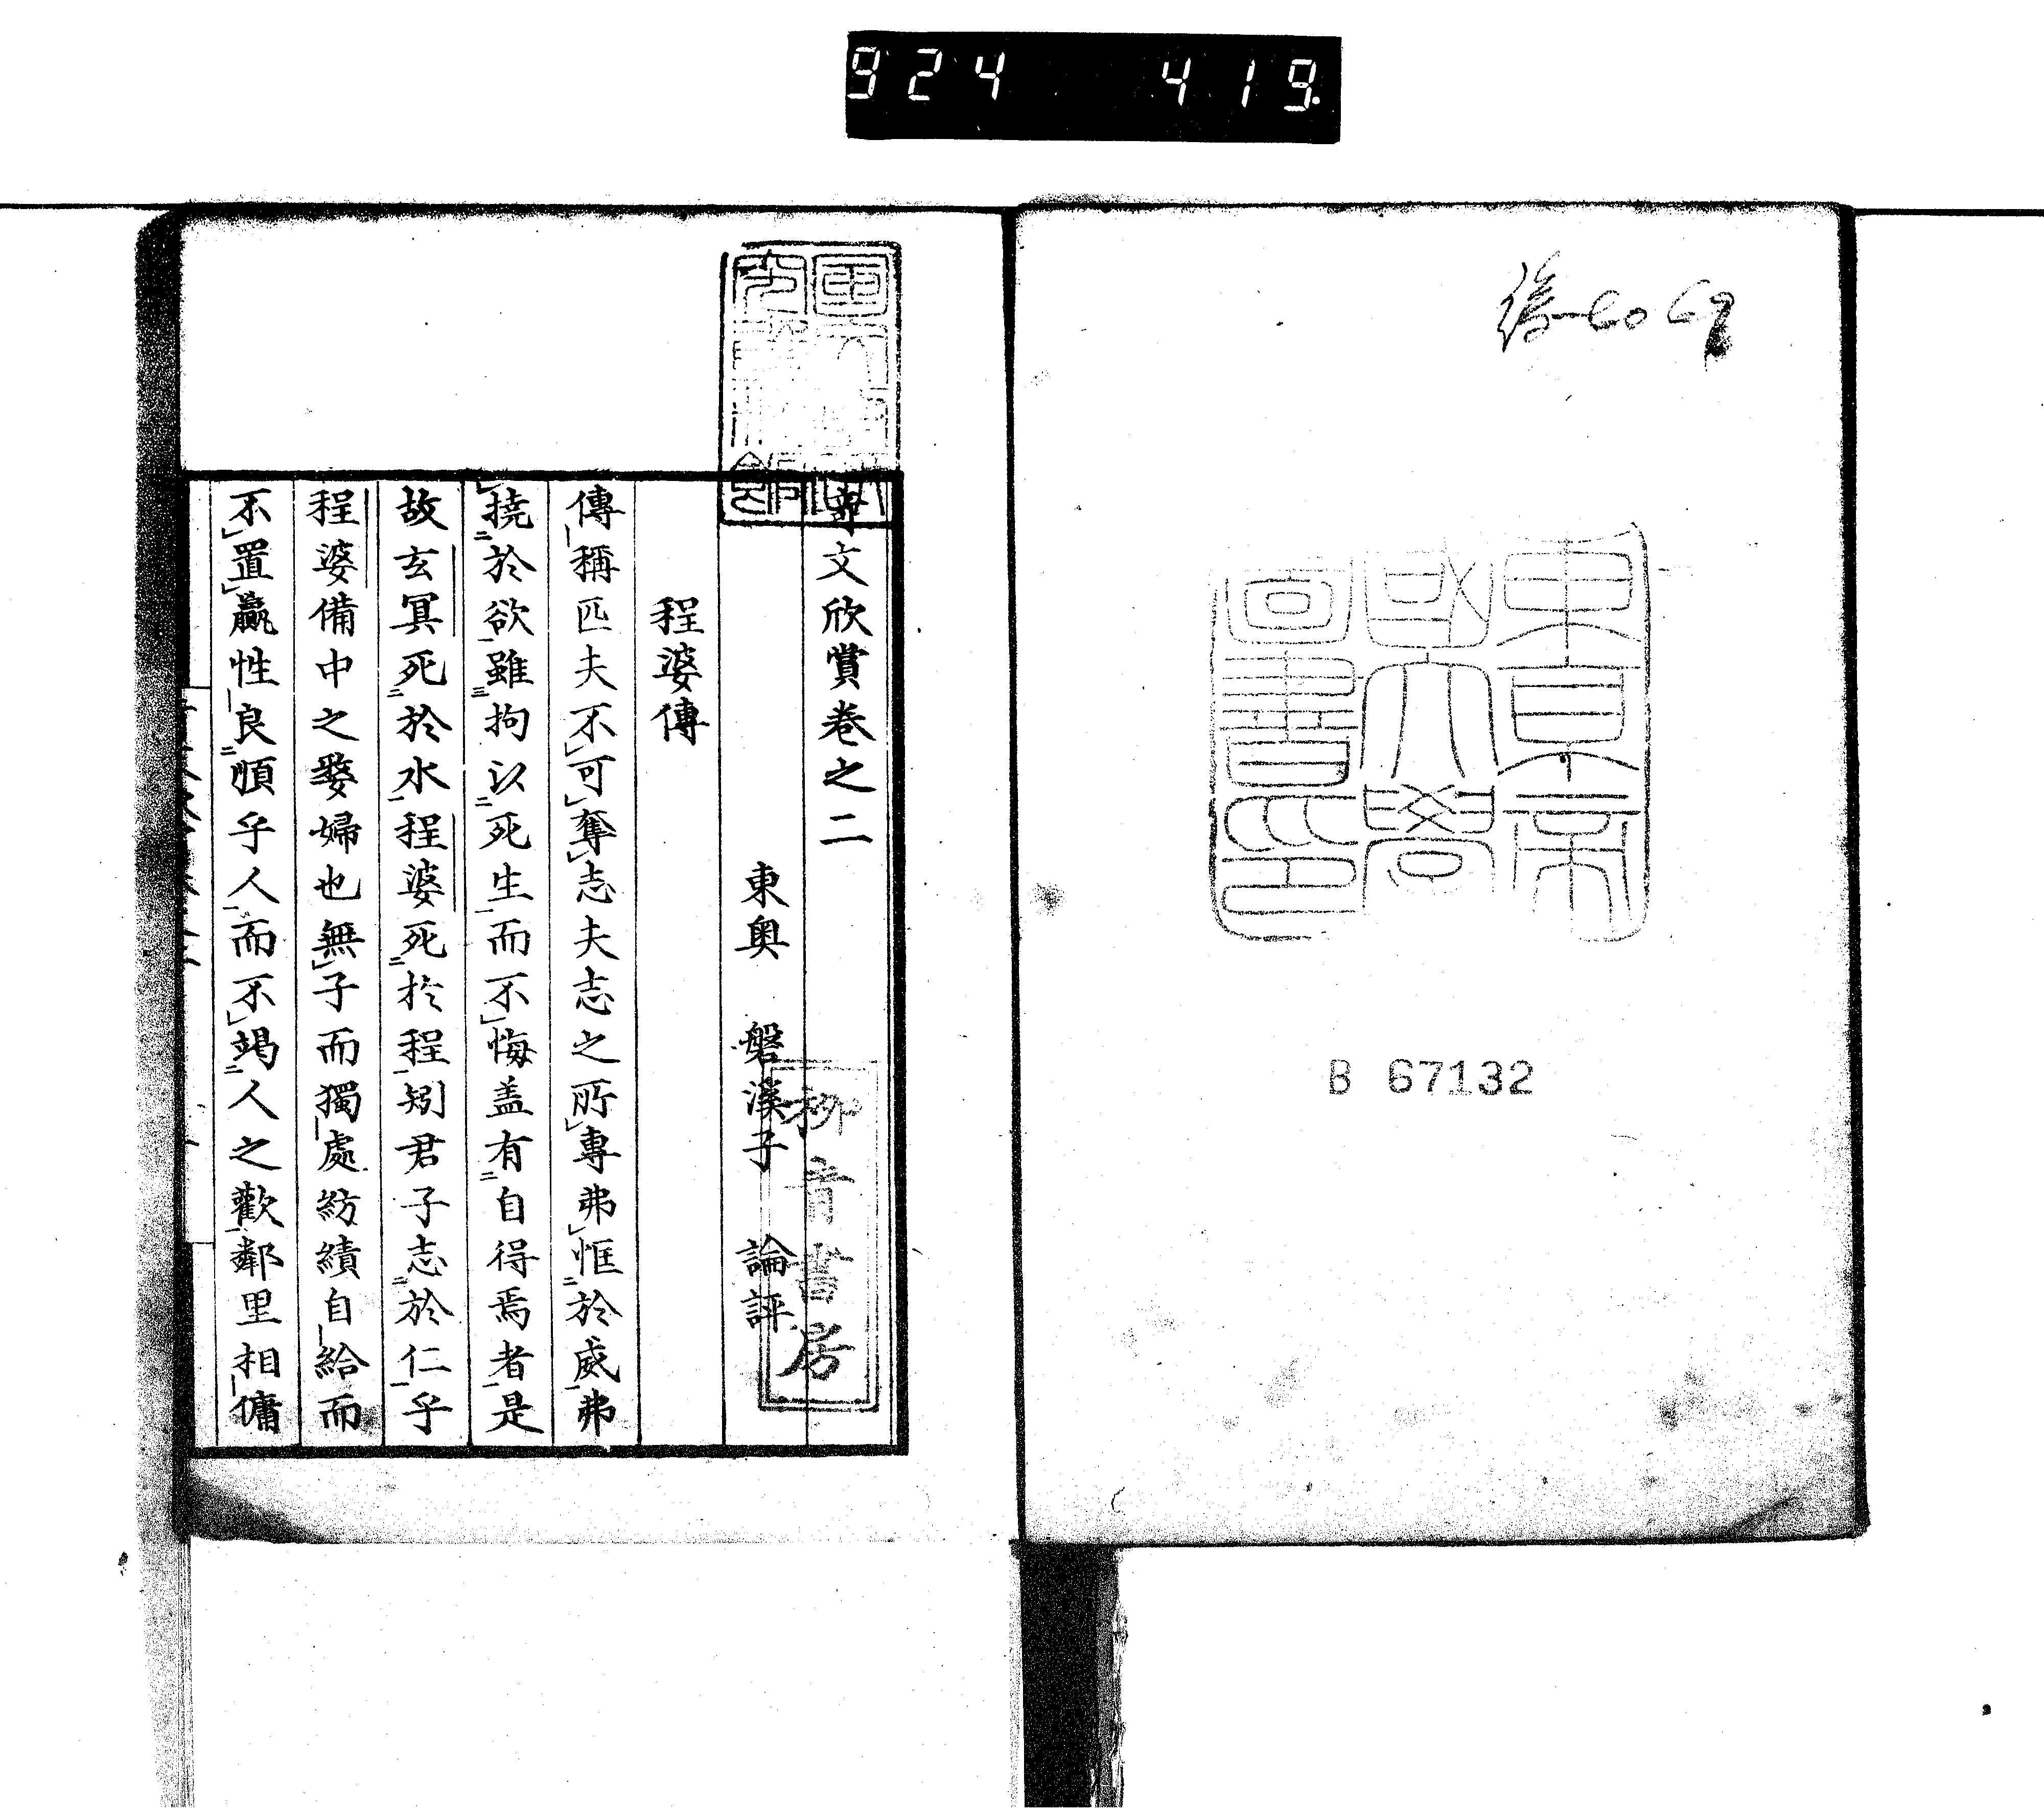 924 419.
60 69
東京帝
國大學
圖書印
B 67132
文欣賞卷之二
東奥 磐溪子 論評
柳青書房
程婆傳
傳稱匹夫不可奪志夫志之所專弗恇於威弗
撓於欲雖拘以死生而不悔盖有自得焉者是
故玄冥死於水程婆死於程矧君子志於仁乎
程婆備中之嫠婦也無子而獨處紡績自給而
不置贏性良順乎人而不竭人之歡鄰里相傭